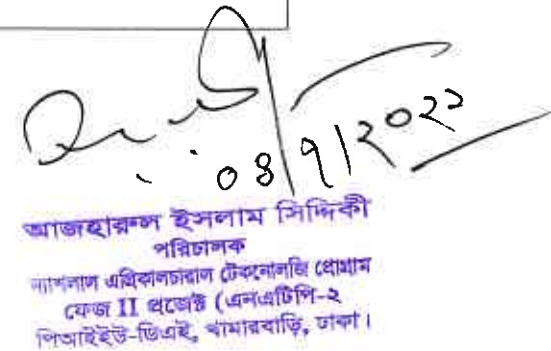 ০৪/৭/২০২২
আজহারুল ইসলাম সিদ্দিকী
পরিচালক
ন্যাশনাল এগ্রিকালচারাল টেকনোলজি প্রোগ্রাম
ফেজ II প্রজেক্ট (এনএটিপি-২
পিআইইউ-ডিএই, খামারবাড়ি, ঢাকা।